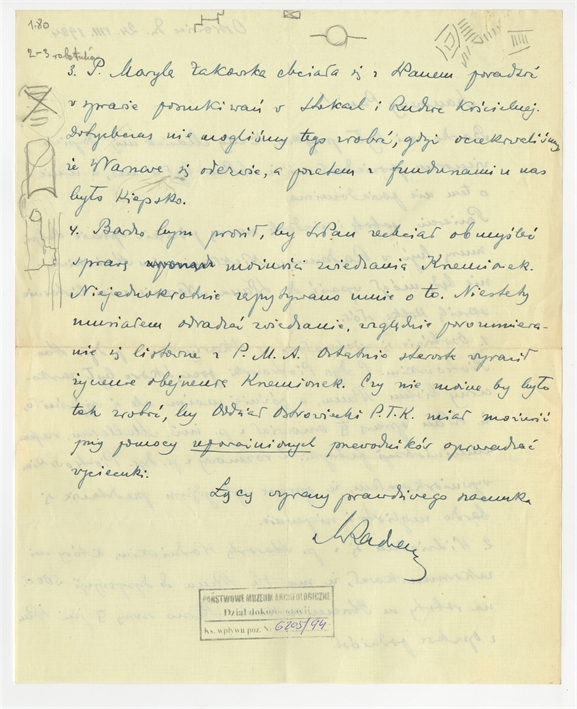 1.80
2-3
3. P. Maryla Żakowska chciała się z WPanem poradzić
w sprawie poszukiwań w i Rudzie Kościelnej.
Dotychczas nie mogliśmy tego zrobić, gdyż oczekiwaliśmy
że Warszawa się odezwie, a potem z funduszami u nas
było kiepsko.
4. Bardzo bym prosił, by WPan zechciał obmyśleć
sprawę możności zwiedzania Krzemionek.
Niejednokrotnie zapytywano mnie o to. Niestety
musiałem odradzać zwiedzanie, względnie porozumiewa-
nie się listowne z P.M.A. Ostatnio starosta wyraził
życzenie obejrzenia Krzemionek. Czy nie można by było
tak zrobić, by Oddział Ostrowiecki P.T.K. miał możność
przy pomocy upoważnionych przewodników oprowadzać
wycieczki.
Łączę wyrazy prawdziwego szacunku
PAŃSTWOWE MUZEUM ARCHEOLOGICZNE
Dział dokumentacji
Ks. wpływu poz. N. 6205/94